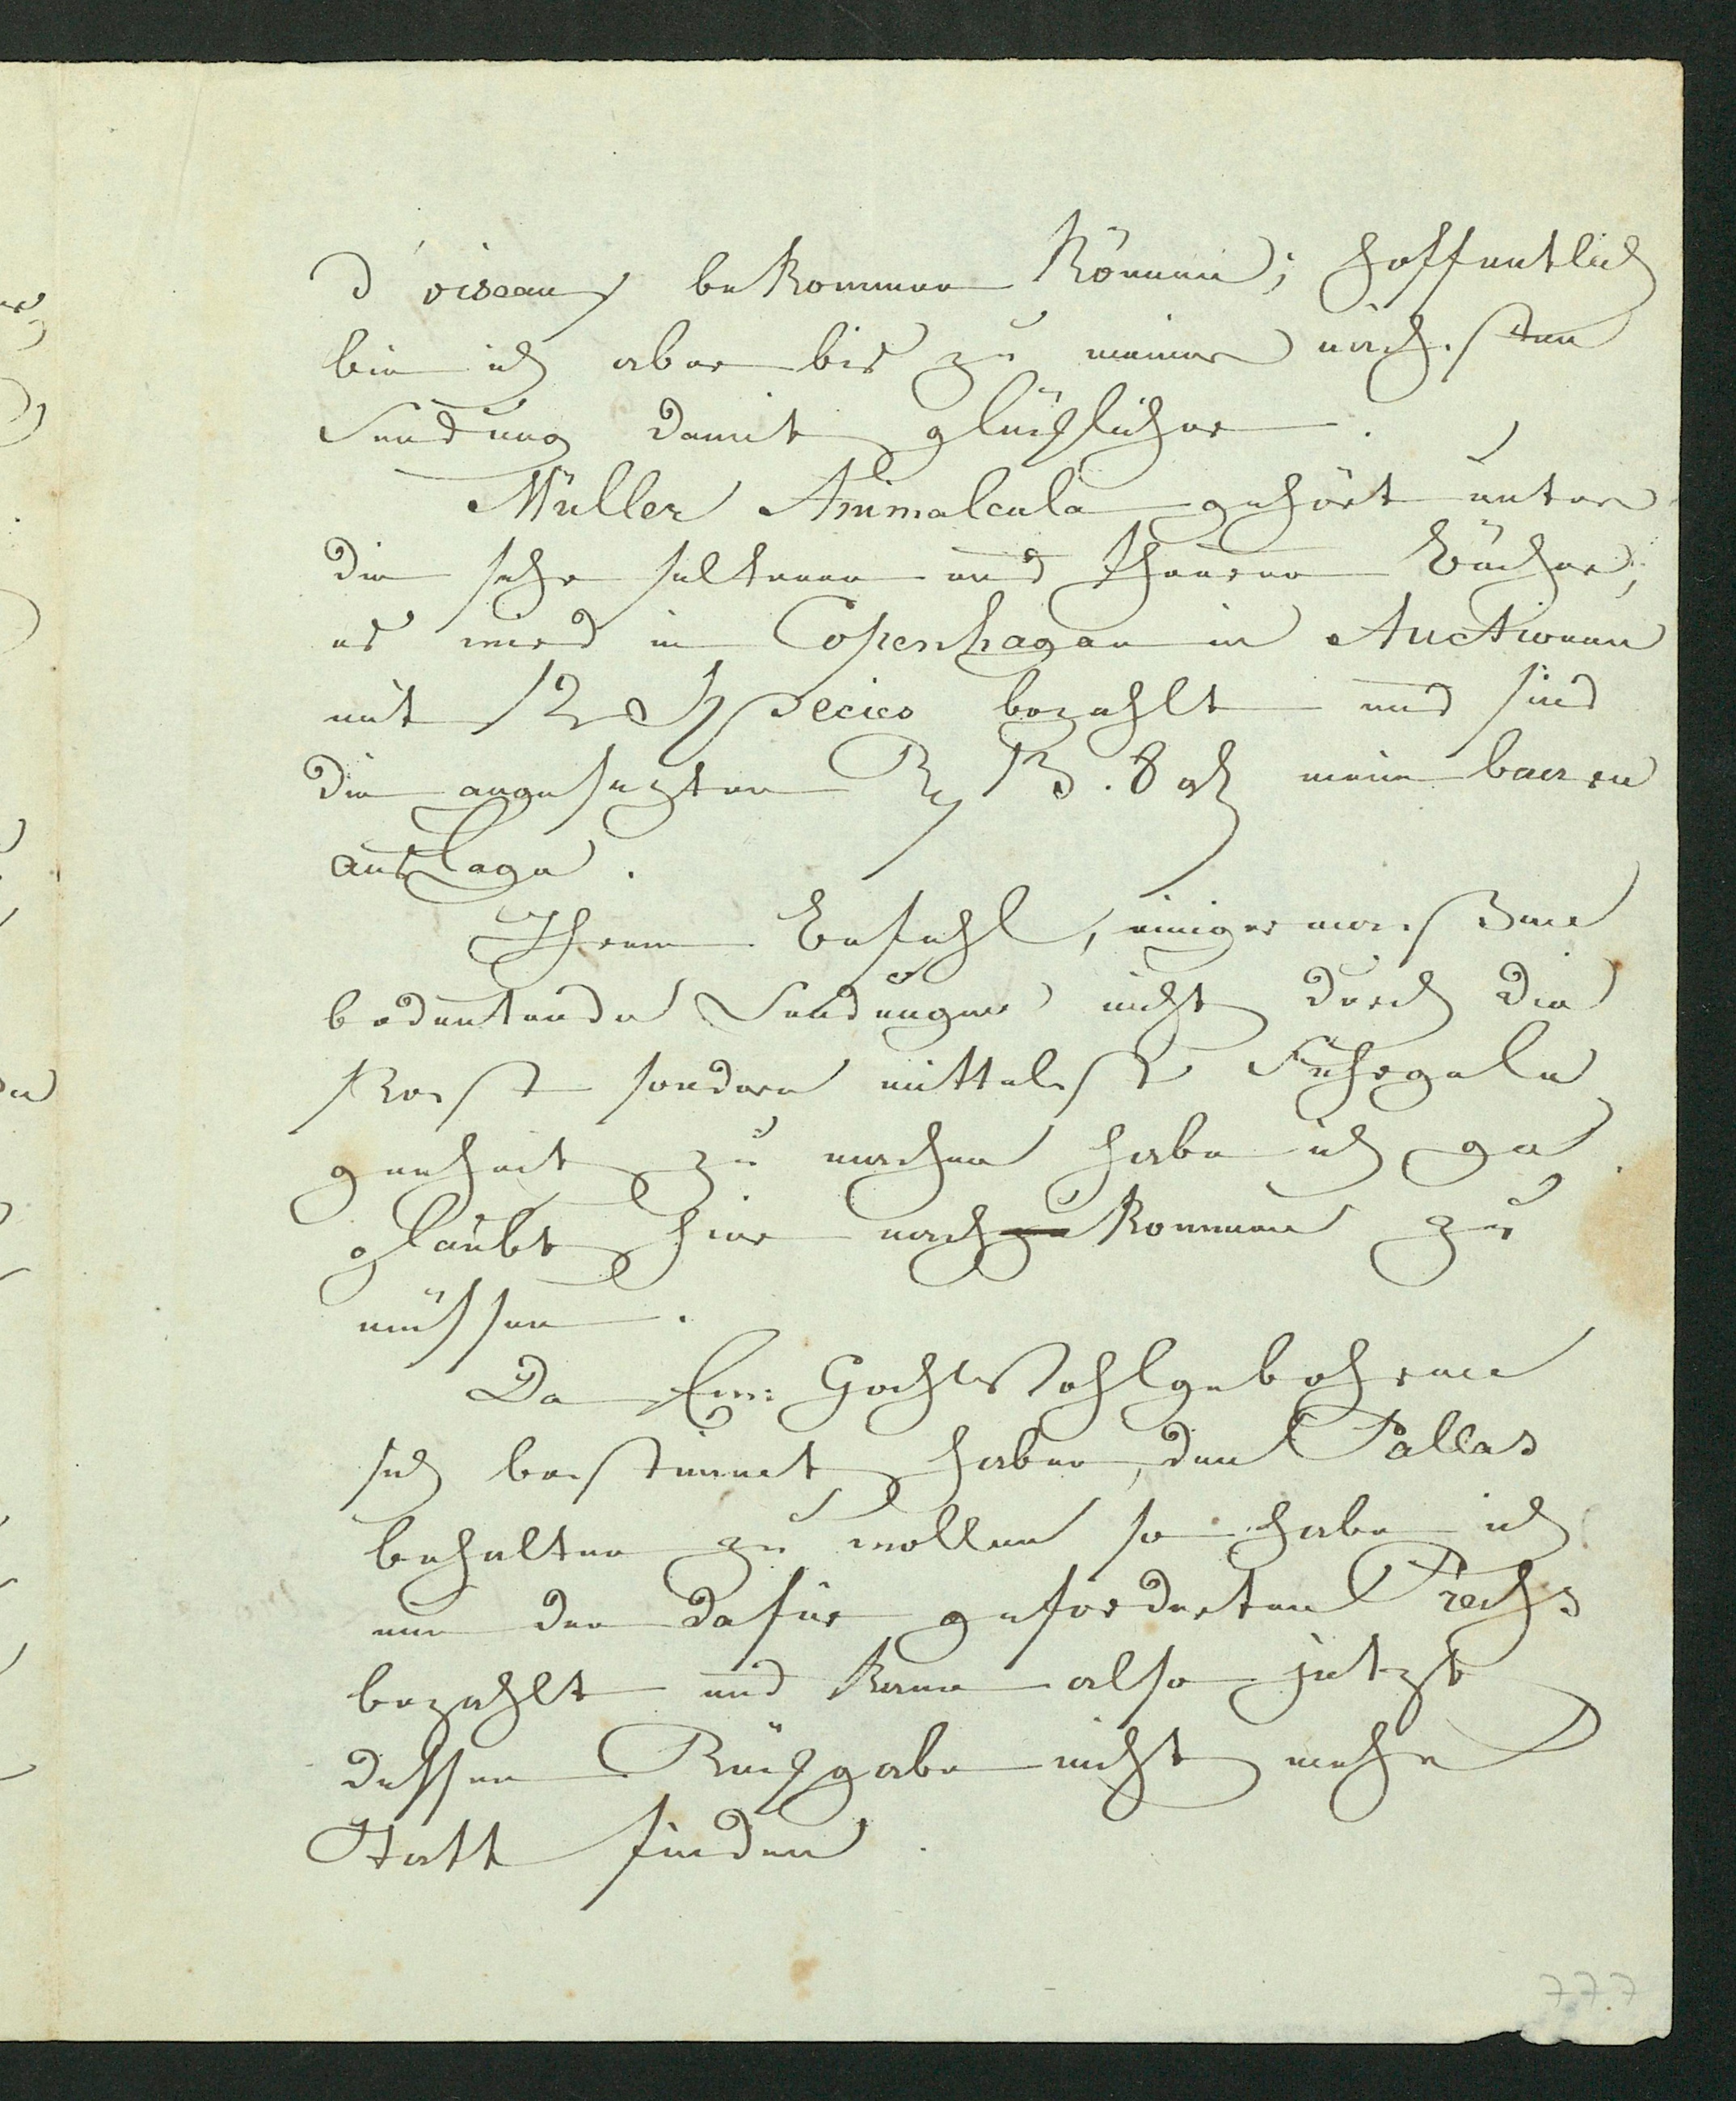 d'oiseaux bekommen können; hoffentlich
bin ich aber bis zu meiner nächsten
Sendung damit glücklicher.
Müller Animalcula gehört unter
die sehr seltenen und theuren Bücher;
es wird in Copenhagen in Auctionen
mit 12 Species bezahlt und sind
die angesezten 13. 8 meine baaren
auslage.
Ihrem Befehl, einigermaßen
bedeutende Sendungen nicht durch die
Post sondern mittelst Fuhrgele
genheit zu machen habe ich ge
glaubt hier nach kommen zu
müssen.
Da Ew: HochWohlgebohrene
sich bestimmt haben, den Pallas
behalten zu wollen so habe ich
nun den dafür geforderten Preiß
bezahlt und kann also jetzt
dessen Rückgabe nicht mehr
Statt finden.
777